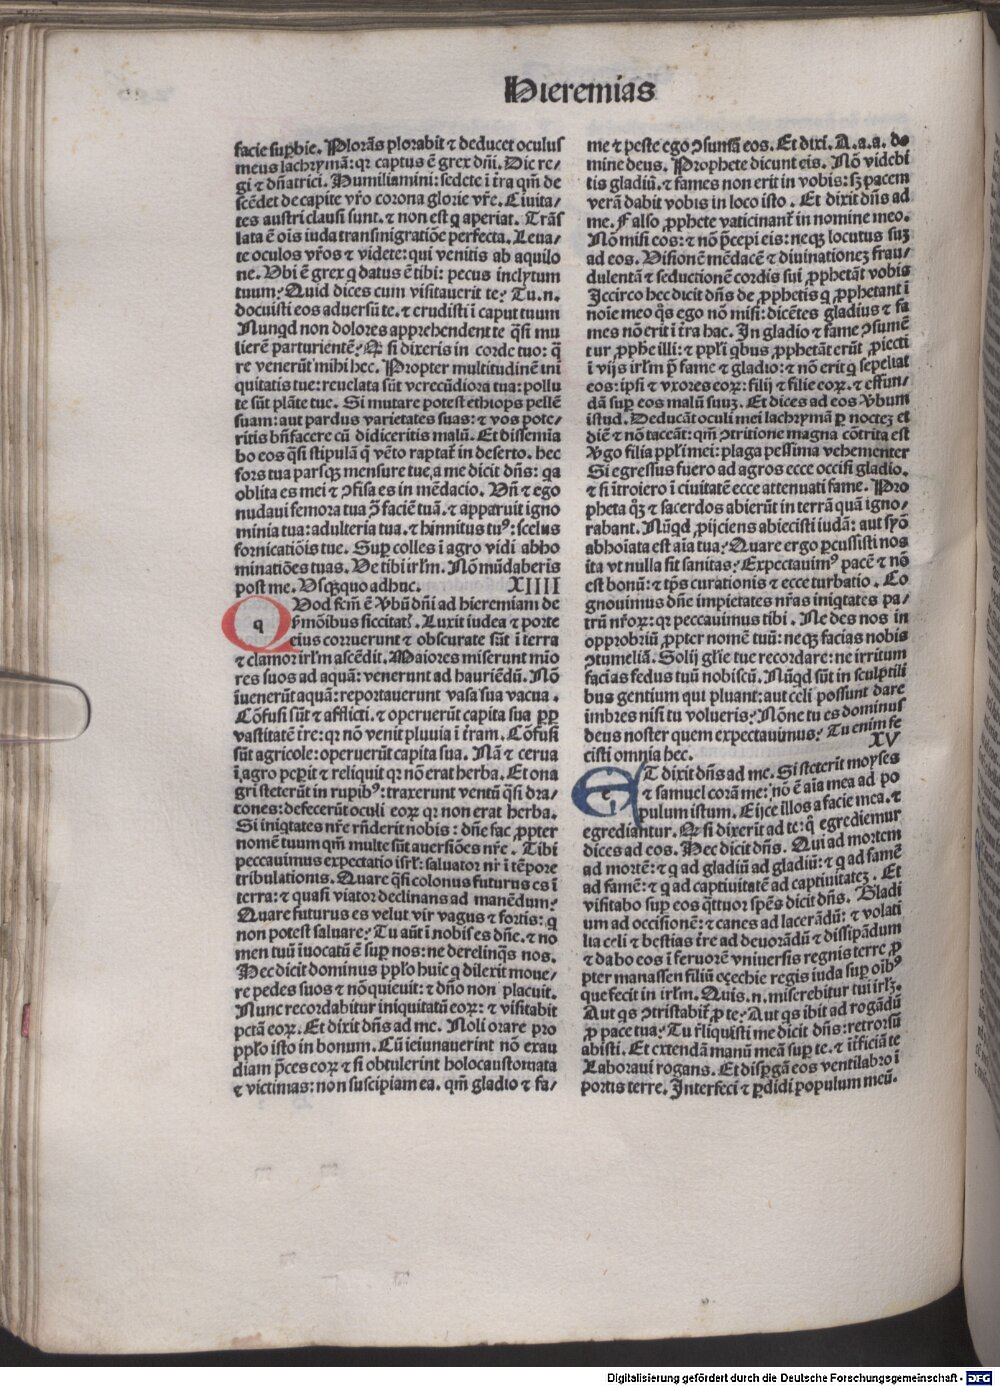 Hieremias
facie sup̱bie. Plorãs plorabit ⁊ deducet oculus
meus lachrymã: qꝛ captus ē grex dñi. Dic re⸗
gi ⁊ dñatrici. Humiliamini: sedete ĩ t̃ra qm̃ de
scẽdet de capite vr̃o corona glorie vr̃e. Ciuita⸗
tes austri clausi sunt. ⁊ non est q̇ aperiat. Trãs
lata ē ois iuda transmigratiõe perfecta. Leua⸗
te oculos vr̃os ⁊ videte: qui venitis ab aquilo
ne. Vbi ē grex q̇ datus ē tibi: pecus inclytum
tuum? Quid dices cum visitauerit te? Tu.n.
docuisti eos aduersũ te. ⁊ erudisti ĩ caput tuum
Nunqd non dolores apprehendent te q̃si mu
lierẽ parturientẽ? Ꙙ si dixeris in corde tuo: q̃
re venerũt mihi hec. Propter multitudinẽ ini
quitatis tue: reuelata sũt verecũdiora tua: pollu
te sũt plãte tue. Si mutare potest ethiops pellẽ
suam: aut pardus varietates suas: ⁊ vos pote⸗
ritis bñfacere cũ didiceritis malũ. Et dissemia
bo eos q̃si stipulã q̃ vẽto raptat̃ in deserto. hec
fors tua parsqꝫ mensure tue, a me dicit dñs: qa
oblita es mei ⁊ ↄfisa es in mẽdacio. Vñ ⁊ ego
nudaui femora tua ↄ̃ faciẽ tuã. ⁊ apparuit igno
minia tua: adulteria tua. ⁊ hinnitus tuꝰ: scelus
fornicatiõis tue. Sup̱ colles ĩ agro vidi abho
minatiões tuas. Ve tibi irl̃m. Nõ mũdaberis
post me. Vsqꝫquo adhuc. XIIII
QVod fcm̃ ē v̓bũ dñi ad hieremiam de
q s̓mõibus siccitatꝭ. Luxit iudea ⁊ porte
eius corruerunt ⁊ obscurate sũt ĩ terra
⁊ clamor irl̃m ascẽdit. Maiores miserunt mĩo
res suos ad aquã: venerunt ad hauriẽdũ. Nõ
ĩuenerũt aquã: reportauerunt vasa sua vacua.
Cõfusi sũt ⁊ afflicti. ⁊ operuerũt capita sua ꝓp̱
vastitatẽ t̃re: qꝛ nõ venit pluuia ĩ t̃ram. Cõfusi
sũt agricole: operuerũt capita sua. Nã ⁊ cerua
ĩ agro pep̱it ⁊ reliquit qꝛ nõ erat herba. Et ona
gri steterũt in rupibꝰ: traxerunt ventũ q̃si dra⸗
cones: defecerũt oculi eoꝝ qꝛ non erat herba.
Si iniqtates nr̃e rñderit nobis: dñe fac ꝓpter
nomẽ tuum qm̃ multe sũt auersiões nr̃e. Tibi
peccauimus expectatio isrl̃: saluator nr̃ ĩ tẽpore
tribulationis. Quare q̃si colonus futurus es ĩ
terra: ⁊ quasi viator declinans ad manẽdum?
Quare futurus es velut vir vagus ⁊ fortis: q̇
non potest saluare? Tu aũt ĩ nobis es dñe. ⁊ no
men tuũ ĩuocatũ ē sup̱ nos: ne derelinq̃s nos.
Hec dicit dominus ppl̃o huic q̇ dilexit moue⸗
re pedes suos ⁊ nõ quieuit: ⁊ dño non placuit.
Nunc recordabitur iniquitatũ eoꝝ: ⁊ visitabit
pctã eoꝝ. Et dixit dñs ad me. Noli orare pro
ppl̃o isto in bonum. Cũ ieiunauerint nõ exau
diam p̃ces eoꝝ ⁊ si obtulerint holocaustomata
⁊ victimas: non suscipiam ea. qm̃ gladio ⁊ fa⸗
me ⁊ peste ego ↄsumã eos. Et dixi. A.a.a. do
mine deus. Prophete dicunt eis. Nõ videbi
tis gladiũ. ⁊ fames non erit in vobis: sꝫ pacem
verã dabit vobis in loco isto. Et dixit dñs ad
me. Falso ꝓphete vaticinant̃ in nomine meo.
Nõ misi eos: ⁊ nõ p̃cepi eis: neqꝫ locutus suꝫ
ad eos. Visionẽ mẽdacẽ ⁊ diuinationeꝫ frau⸗
dulentã ⁊ seductionẽ cordis sui ꝓphetãt vobis
Iccirco hec dicit dñs de ꝓphetis q̇ ꝓphetant ĩ
noie meo q̃s ego nõ misi: dicẽtes gladius ⁊ fa
mes nõ erit ĩ t̃ra hac. In gladio ⁊ fame ↄsumẽ
tur ꝓph̃e illi: ⁊ ppl̃i qbus ꝓphetãt erũt ꝓiecti
ĩ vijs irl̃m p̃ fame ⁊ gladio: ⁊ nõ erit q̇ sepeliat
eos: ipsi ⁊ vxores eoꝝ: filij ⁊ filie eoꝝ. ⁊ effun⸗
dã sup̱ eos malũ suuꝫ. Et dices ad eos v̓bum
istud. Deducãt oculi mei lachrymã p̱ nocteꝫ et
diẽ ⁊ nõ taceãt: qm̃ ↄtritione magna cõtrita est
v̓go filia ppl̃i mei: plaga pessima vehementer
Si egressus fuero ad agros ecce occisi gladio.
⁊ si ĩtroiero ĩ ciuitatẽ ecce attenuati fame. Pro
pheta qꝫ ⁊ sacerdos abierũt in terrã quã igno⸗
rabant. Nũqd ꝓijciens abiecisti iudã: aut syõ
abhoiata est aĩa tua? Quare ergo p̱cussisti nos
ita vt nulla sit sanitas? Expectauimꝰ pacẽ ⁊ nõ
est bonũ: ⁊ tp̃s curationis ⁊ ecce turbatio. Co
gnouimus dñe impietates nr̃as iniqtates pa⸗
trũ nr̃oꝝ: qꝛ peccauimus tibi. Ne des nos in
opprobriũ ꝓpter nomẽ tuũ: neqꝫ facias nobis
ↄtumeliã. Solij gl̃ie tue recordare: ne irritum
facias fedus tuũ nobiscũ. Nũqd sũt in sculptili
bus gentium qui pluant: aut celi possunt dare
imbres nisi tu volueris? Nõne tu es dominus
deus noster quem expectauimus? Tu enim fe
cisti omnia hec. XV
ET dixit dñs ad me. Si steterit moyses
e ⁊ samuel corã me: nõ ē aĩa mea ad po
pulum istum. Eijce illos a facie mea. ⁊
egrediantur. Ꙙ si dixerit ad te: q̃ egrediemur
dices ad eos. Hec dicit dñs. Qui ad mortem
ad mortẽ: ⁊ q ad gladiũ ad gladiũ: ⁊ q ad famẽ
ad famẽ: ⁊ q ad captiuitatẽ ad captiuitateꝫ. Et
visitabo sup̱ eos q̃ttuor spẽs dicit dñs. Gladi
um ad occisionẽ: ⁊ canes ad lacerãdũ: ⁊ volati
lia celi ⁊ bestias t̃re ad deuorãdũ ⁊ dissipãdum
⁊ dabo eos ĩ feruorẽ vniuersis regnis terre ꝓ
pter manassen filiũ eçechie regis iuda sup̱ oibꝰ
que fecit in irl̃m. Quis.n. miserebitur tui irl̃ꝫ.
Aut qs ↄtristabit̃ ꝓ te? Aut qs ibit ad rogãdũ
ꝓ pace tua? Tu r̃liquisti me dicit dñs: retrorsũ
abisti. Et extendã manũ meã sup̱ te. ⁊ ĩt̃ficiã te
Laboraui rogans. Et disp̱gã eos ventilabro ĩ
portis terre. Interfeci ⁊ p̱didi populum meũ.
Digitalisierung gefördert durch die Deutsche Forschungsgemeinschaft - DFG